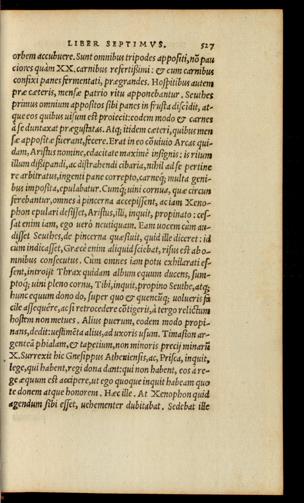 LIBER SEPTIMVS. 527
orbem accubuere. Sunt omnibus tripodes appositi, nõ pau
ciores quàm XX. carnibus refertißimi: & cum carnibus
confixi panes fermentati, prægrandes. Hospitibus autem
præ cæteris, mensæ patrio ritu apponebantur. Seuthes
primus omnium appositos sibi panes in frusta discidit, at-
que eos quibus uisum est proiecit: eodem modo & carnes
à se duntaxat prægustatas. Atq; itidem cæteri, quibus men
sæ appositæ fuerant, fecere. Erat in eo cõuiuio Arcas qui-
dam, Aristus nomine, edacitate maximè insignis: is rerum
illum dißipandi, ac distrahendi cibaria, nihil ad se pertine
re arbitratus, ingenti pane correpto, carneq; multa geni-
bus imposita, epulabatur. Cumq; uini cornua, quæ circum
ferebantur, omnes à pincerna accepissent, ac iam Xeno-
phon epulari desisset, Aristus, illi, inquit, propinato: ces-
sat enim iam, ego uerò neutiquam. Eam uocem cùm au-
disset Seuthes, de pincerna quæsiuit, quid ille diceret: id
cùm indicasset, Græcè enim aliquid sciebat, risus est ab o-
mnibus consecutus. Cùm omnes iam potu exhilarati es-
sent, introijt Thrax quidam album equum ducens, sum-
ptoq; uini pleno cornu, Tibi, inquit, propino Seuthe, atq;
hunc equum dono do, super quo & quencũq; uolueris fa
cilè assequêre, ac si retrocedere cõtigerit, à tergo relictum
hostem non metues. Alius puerum, eodem modo propi-
nans, dedit: uestimẽta alius, ad uxoris usum. Timasion ar-
genteã phialam, & tapetium, non minoris precij minarũ
X. Surrexit hic Gnesippus Atheniensis, ac, Prisca, inquit,
lege, qui habent, regi dona dant: qui non habent, eos à re-
ge æquum est accipere, ut ego quoque inquit habeam quo
te donem atque honorem. Hæc ille. At Xenophon quid
agendum sibi esset, uehementer dubitabat. Sedebat ille